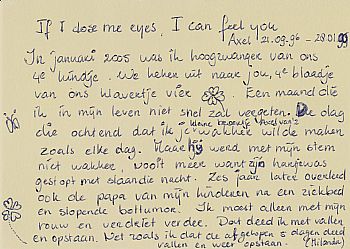 If I close me eyes, I can feel you
Axel 21.09.96 - 28.01.99
In januari 2005 was ik hoogzwanger van ons
4e kindje. We keken uit naar jou, 4e blaadje
van ons klavertje vier. Een maand die
ik in mijn leven niet snel zal vergeten. De dag
die ochtend dat ik je kleine broertje Axel van 2 wakker wilde maken
zoals elke dag. Maar hij werd met mijn stem
niet wakker, nooit meer want zijn hartje was
gestopt met slaan die nacht. Zes jaar later overleed
ook de papa van mijn kinderen na een ziekbed
en slopende bottumor. Ik moest alleen met mijn
rouw en verdriet verder. Dat deed ik met vallen
en opstaan. Net zoals ik dat de afgelopen 5 dagen deed
vallen en weer opstaan